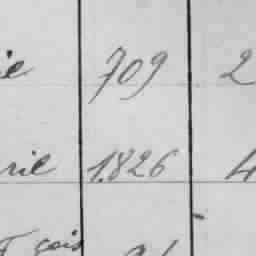 ie 709 2
ril 1.826 4
çois